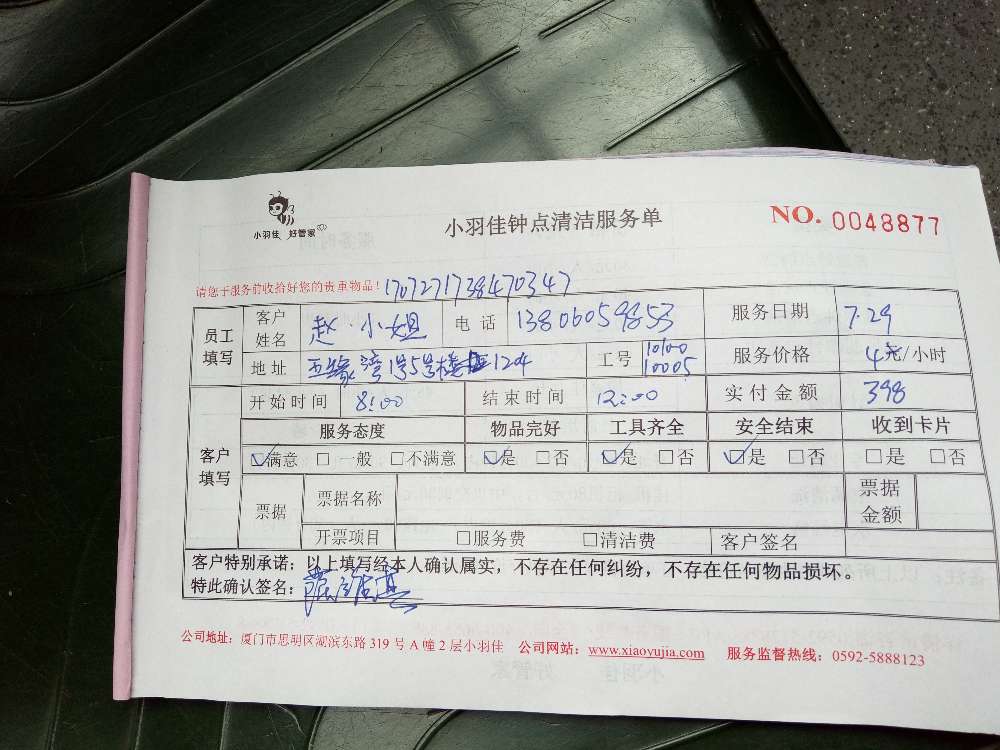 小羽佳 好管家
小羽佳钟点清洁服务单
NO. 0048877
请您于服务前收给好您的贵重物品! 170727173847034​7
员工填写 客户姓名 赵小姐 电话 13806059853 服务日期 7.29
地址 五缘湾1号5号楼 1204 工号 10100 10005 服务价格 /小时
开始时间 8:00 结束时间 12:00 实付金额 398
客户填写 服务态度 物品完好 工具齐全 安全结束 收到卡片
☑满意 □一般 □不满意 ☑是 □否 ☑是 □否 ☑是 □否 □是 □否
票据 票据名称 票据金额
开票项目 □服务费 □清洁费 客户签名
客户特别承诺：以上填写经本人确认属实，不存在任何纠纷，不存在任何物品损坏。
特此确认签名：
公司地址：厦门市思明区湖滨东路 319 号 A 幢 2 层小羽佳 公司网站：www.xiaoyujia.com 服务监督热线：0592-5888123